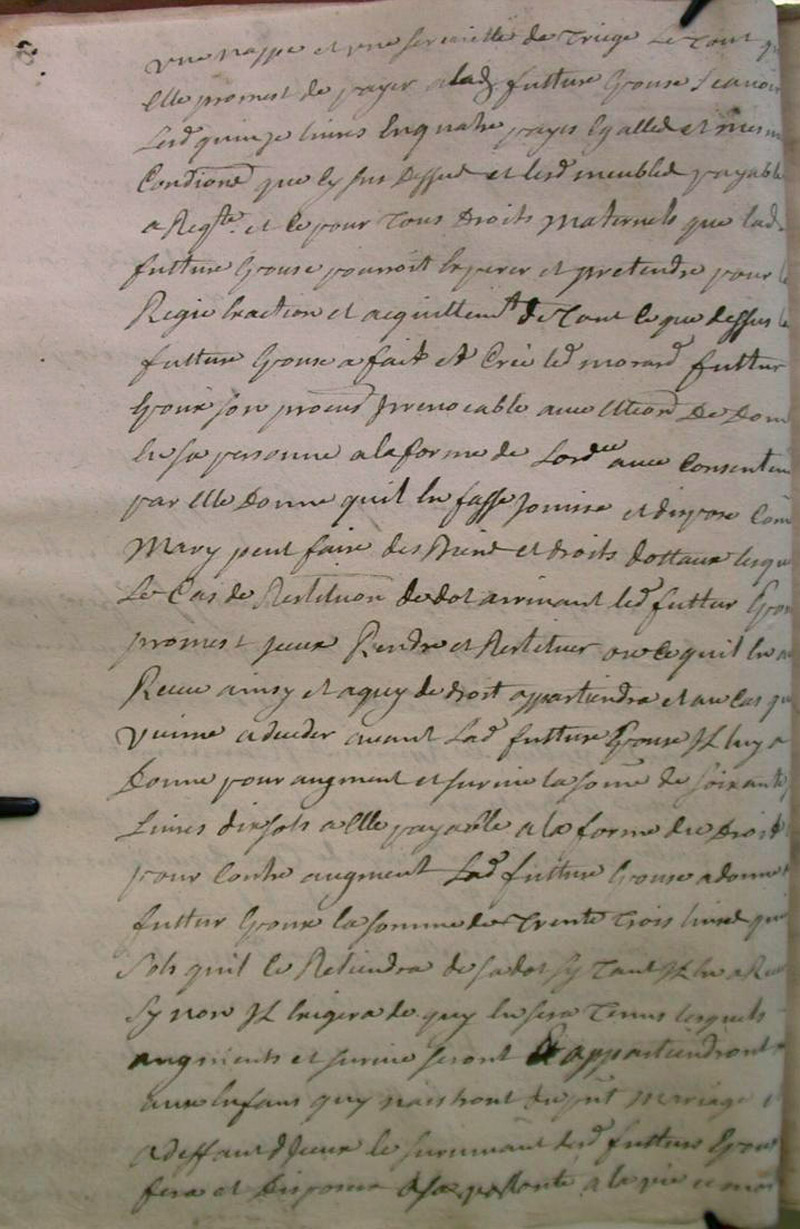 une nappe et une serviette de triege le tout
elle promest de payer a lad futture epouse scavoir
lesd quinze livres en quatre payes egalles et mesm
condiond que cy sus dessus et lesd meubles payable
a Reqte et ce pour tous droits maternels que lad
futture epouse pourroit esperer et pretendre pour
Regir exaction et acquittemt de tout ce que dessus
futture epouse a fait et cree led morard futtur
epoux son procur jrrevocable avec
en sa personne a la forme de Lordce avec consentem
par elle donne quil en fasse jouisse et dispose com
Mary peut faire des biens et droits dottaux
Le Cas de Restitution de dot arrivant led futtur epou
promest jceux Rendre et Restituer ou ce quil en a
Receu ainsy et a quy de droit appartiendra et au cas
vienne a deceder avant Lad futture epouse jl luy a
Donne pour augment et survie la some de soixante
Livres dix sols a elle payable a la forme du Droit
pour contre augment Lad futture epouse a donne
futtur epoux la somme de trente trois livres
sols quil se Retiendra de sa dot sy tant jl en a Receu
sy non jl exigera de quy en sera tenus lesquels
augments et survie seront et appartiendront
aux enfans quy naistront du pnt mariage
a deffaut djceux le survivant desd futturs epoux
fera et disposera a sa volonte a la vie